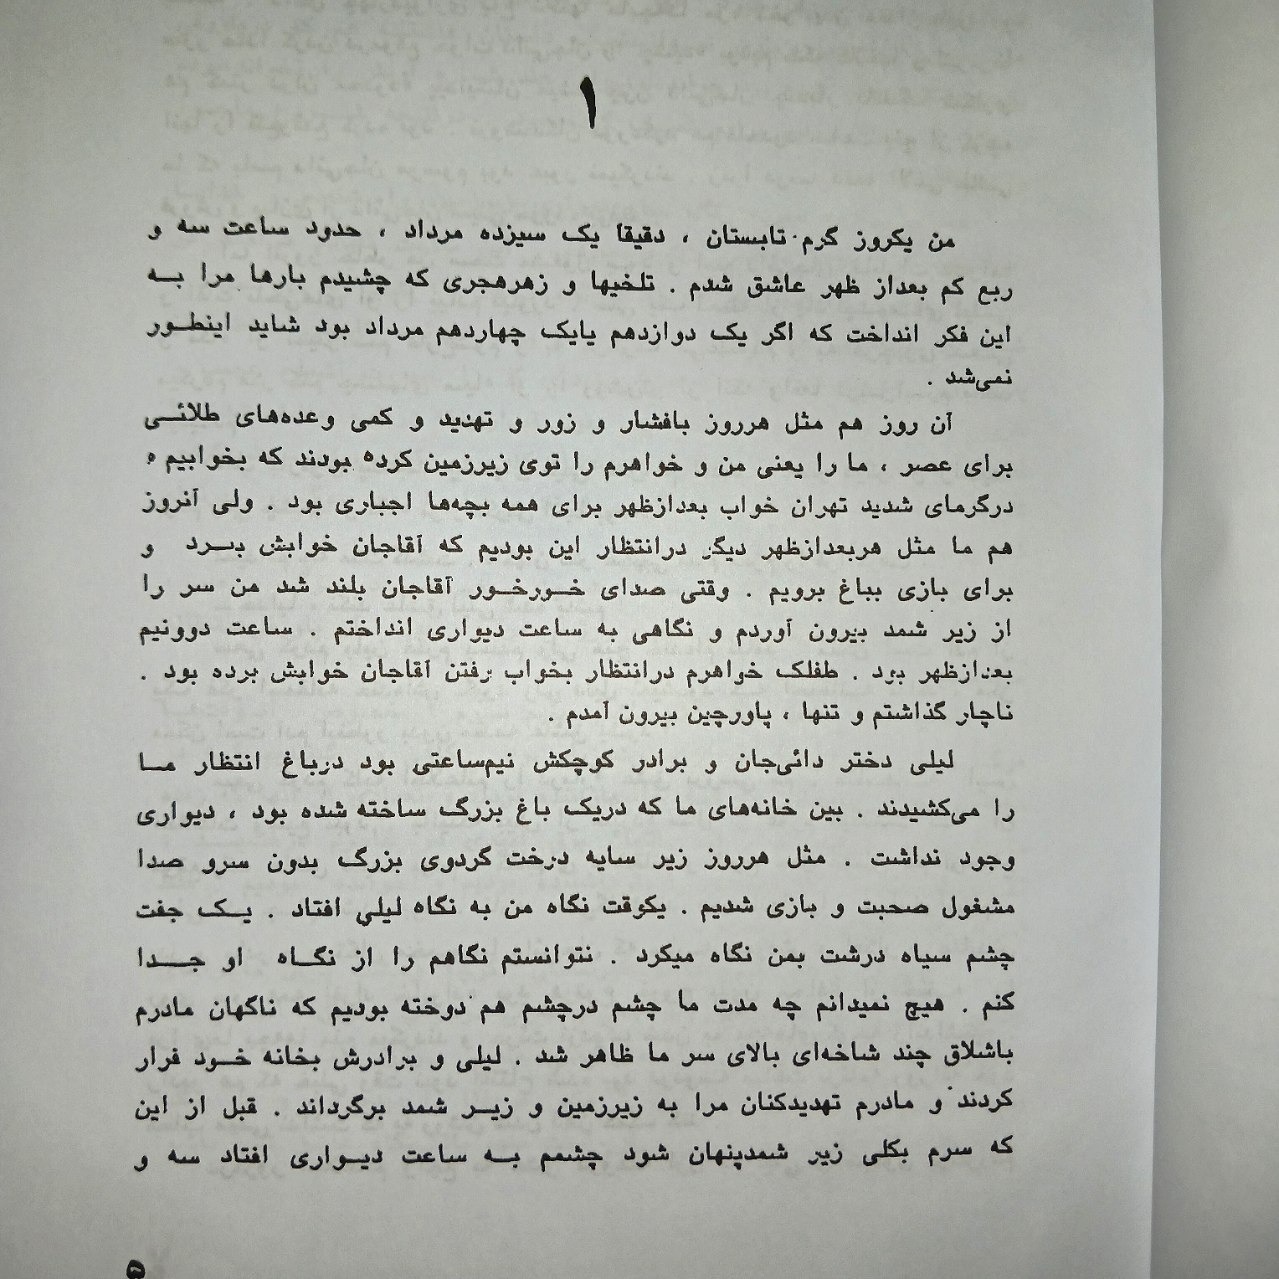 ۱
من یکروز گرم تابستان ، دقیقا یک سیزده مرداد ، حدود ساعت سه و
ربع کم بعداز ظهر عاشق شدم . تلخیها و زهرهجری که چشیدم بارها مرا به
این فکر انداخت که اگر یک دوازدهم یایک چهاردهم مرداد بود شاید اینطور
نمی‌شد .
آن روز هم مثل هرروز بافشار و زور و تهدید و کمی وعده‌های طلائی
برای عصر ، ما را یعنی من و خواهرم را توی زیرزمین کرده بودند که بخوابیم ه
درگرمای شدید تهران خواب بعدازظهر برای همه بچه‌ها اجباری بود . ولی آنروز
هم ما مثل هربعدازظهر دیگر درانتظار این بودیم که آقاجان خوابش ببرد و
برای بازی بباغ برویم . وقتی صدای خورخور آقاجان بلند شد من سر را
از زیر شمد بیرون آوردم و نگاهی به ساعت دیواری انداختم . ساعت دوونیم
بعدازظهر بود . طفلک خواهرم درانتظار بخواب رفتن آقاجان خوابش برده بود .
ناچار گذاشتم و تنها ، پاورچین بیرون آمدم .
لیلی دختر دائی‌جان و برادر کوچکش نیم‌ساعتی بود درباغ انتظار ما
را می‌کشیدند . بین خانه‌های ما که دریک باغ بزرگ ساخته شده بود ، دیواری
وجود نداشت . مثل هرروز زیر سایه درخت گردوی بزرگ بدون سرو صدا
مشغول صحبت و بازی شدیم . یکوقت نگاه من به نگاه لیلی افتاد . یک جفت
چشم سیاه درشت بمن نگاه میکرد . نتوانستم نگاهم را از نگاه او جدا
کنم . هیچ نمیدانم چه مدت ما چشم درچشم هم دوخته بودیم که ناگهان مادرم
باشلاق چند شاخه‌ای بالای سر ما ظاهر شد . لیلی و برادرش بخانه خود فرار
کردند و مادرم تهدیدکنان مرا به زیرزمین و زیر شمد برگرداند . قبل از این
که سرم بکلی زیر شمدپنهان شود چشمم به ساعت دیواری افتاد سه و
۵